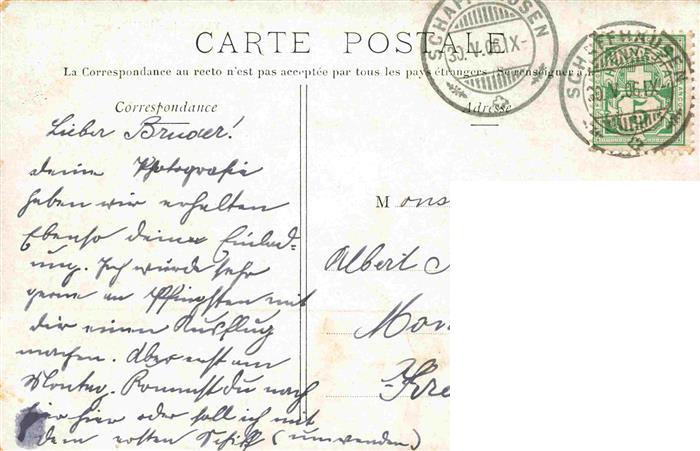 CARTE POSTALE
La Correspondance au recto n'est pas acceptée par tous les pays étrangers. Se renseigner à
SCHAFFHAUSEN
30.V.06.IX-
SCHAFFHAUSEN
30.V.06.IX-
Correspondance
Adresse
Lieber Bruder!
deine Photografie
haben wir erhalten
Ebenso deine Einlad-
ung. Ich würde sehr
gerne an Pfingsten mit
dir einen Ausflug
machen. Aber erst am
Montag. Kommst du nach
hier oder soll ich mit
dem ersten Schiff (umwenden)
Mons
Albert
Mon
Kre